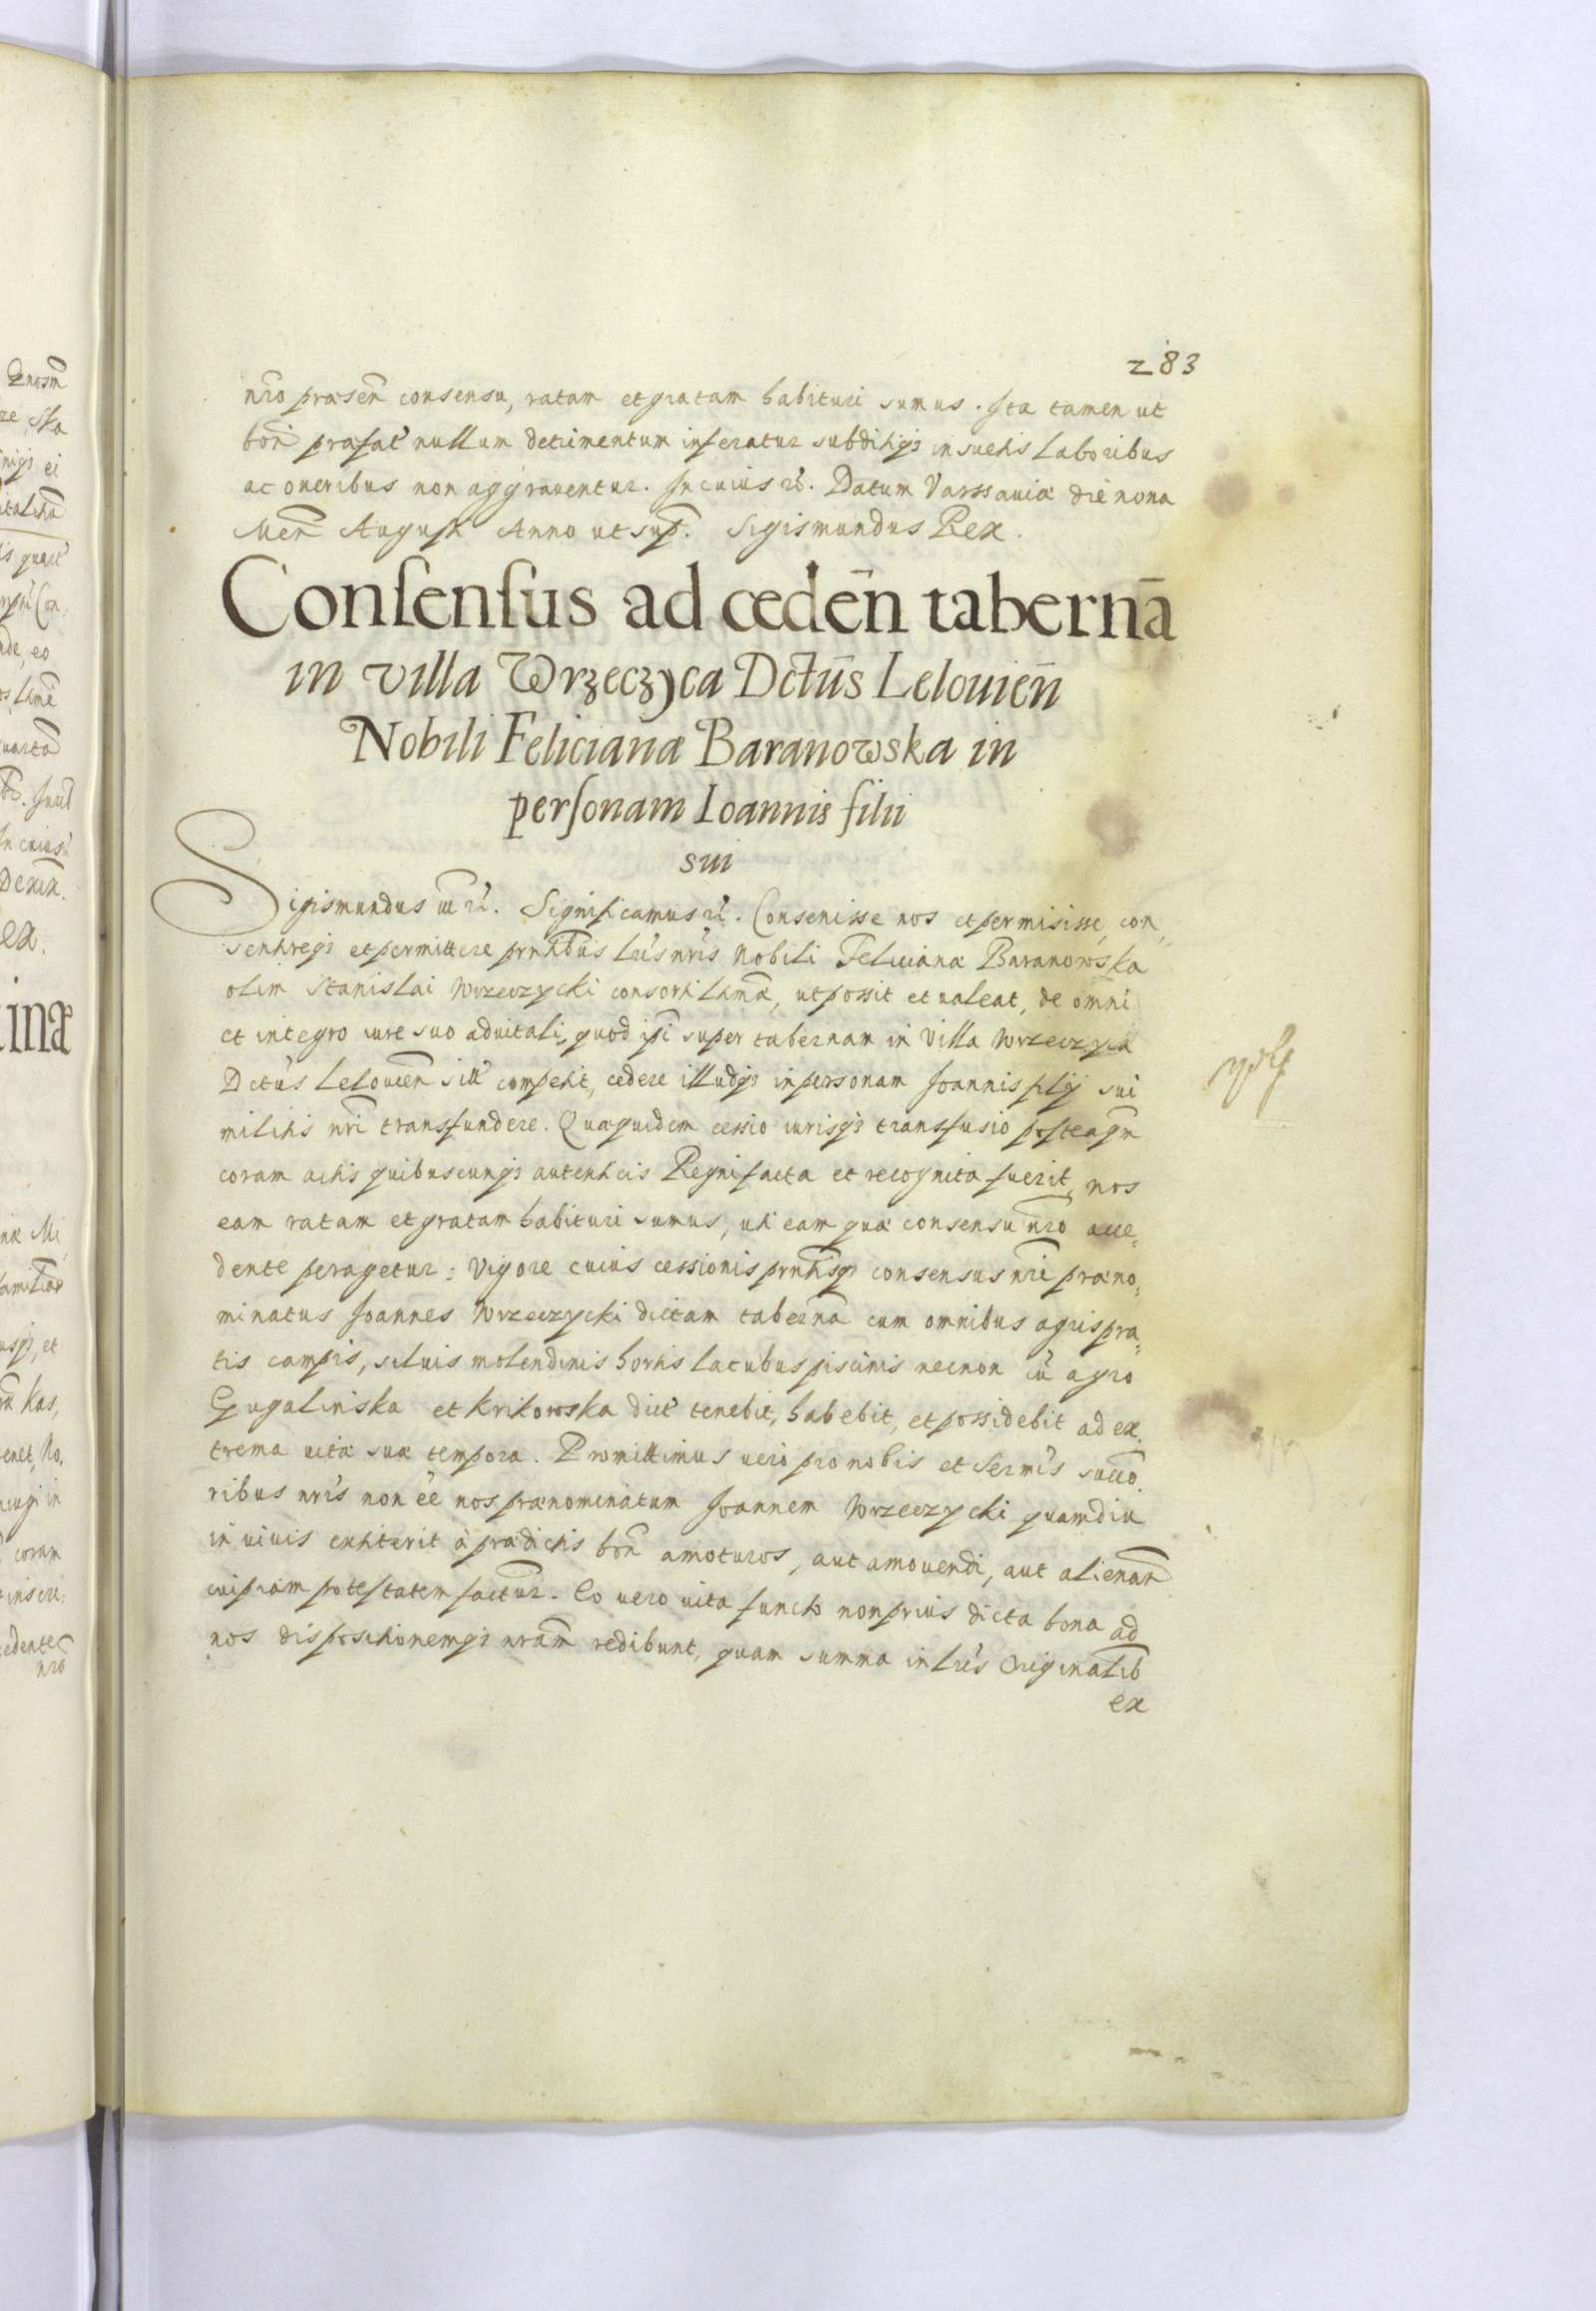 283
nr̃o præsen̄ consensu, ratam et gratam habituri sumus. Ita tamen ut
bon̄ præfat̕ nullum detrimentum inferatur subditiq̨ insuetis laboribus
ac oneribus non aggrauentur. In cuius rẽ. Datum Varssauiæ die nona
Men̄ Augusti Anno ut sup̄. Sigismundus Rex.
Conſenſus ad ceden̄ tabernā
in villa Wrzeczyca Dctūs Lelouien̄
Nobili Felicianæ Baranowska in
perſonam Ioannis filii
sui
Sigismundus ut̄ rẽ. Significamus rẽ. Consensisse nos et permisisse, con„
sentireq̨ et permittere pn̄tibus lr̃is nr̃is Nobili Felicianæ Baranowska
olim Stanislai Wrzeczycki consorti Ltmæ, ut possit et ualeat, de omni
et integro iure suo aduitali, quod ip̄i super tabernam in Villa Wrzeczyca
Dctūs Lelouien̄ sit̕ competit, cedere illudq̨ in personam Joannis filij sui
militis nr̃i transfundere. Quæquidem cessio iurisq̨ transfusio posteaqm̄
coram actis quibuscunq̨ autenticis Regni facta et recognita fuerit, nos
eam ratam et gratam habituri sumus, uti eam quæ consensu nr̃o acce„
dente peragetur: Vigore cuius cessionis prn̄tisq̨ consensus nr̃i præno„
minatus Joannes Wrzeczycki dictam tabernā cum omnibus agris pra„
tis campis, siluis molendinis hortis lacubus piscinis necnon cū agro
Gugalinska et Krikowska dict̕ tenebit, habebit, et possidebit ad ex„
trema uitæ suæ tempora. Promittimus uero pro nobis et Serm̃is succo„
ribus nr̃is non ẽe nos prænominatum Joannem Wrzeczycki quamdiu
in uiuis extiterit à prædictis bon̄ amoturos, aut amouendi, aut alienan̄
cuipiam potestatem factur̄. Eo uero uita functo non prius dicta bona ad
nos dispositionemq̨ nr̃am redibunt, quam summa in lr̃is originalib
ex